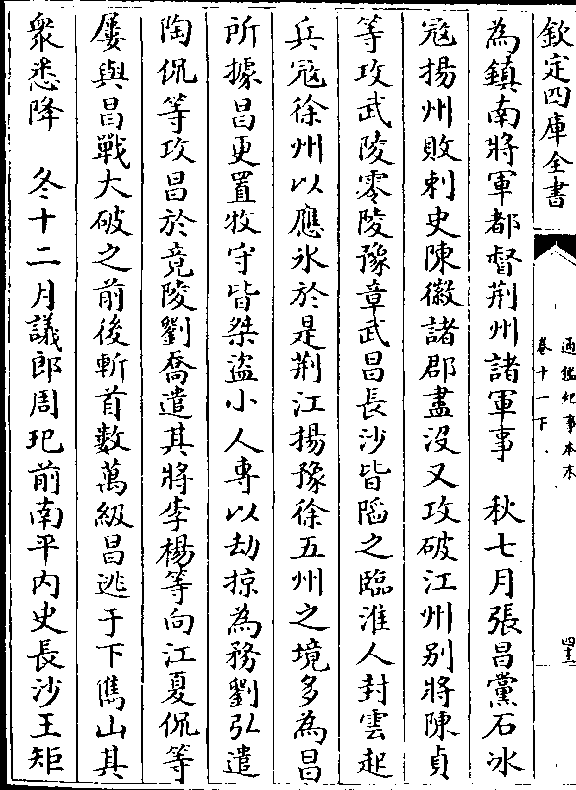 欽定四庫全書
通鑑紀事本末
卷十一下
四十三
為鎮南將軍都督荆州諸軍事　秋七月張昌黨石冰
寇揚州敗刺史陳徽諸郡盡沒又攻破江州别將陳貞
等攻武陵零陵豫章武昌長沙皆䧟之臨淮人封雲起
兵寇徐州以應氷於是荆江揚豫徐五州之境多為昌
所據昌更置牧守皆桀盜小人專以劫掠為務劉弘遣
陶侃等攻昌於竟陵劉喬遣其將李楊等向江夏侃等
屢與昌戰大破之前後斬首數萬級昌逃于下儁山其
衆悉降　冬十二月議郎周玘前南平内史長沙王矩